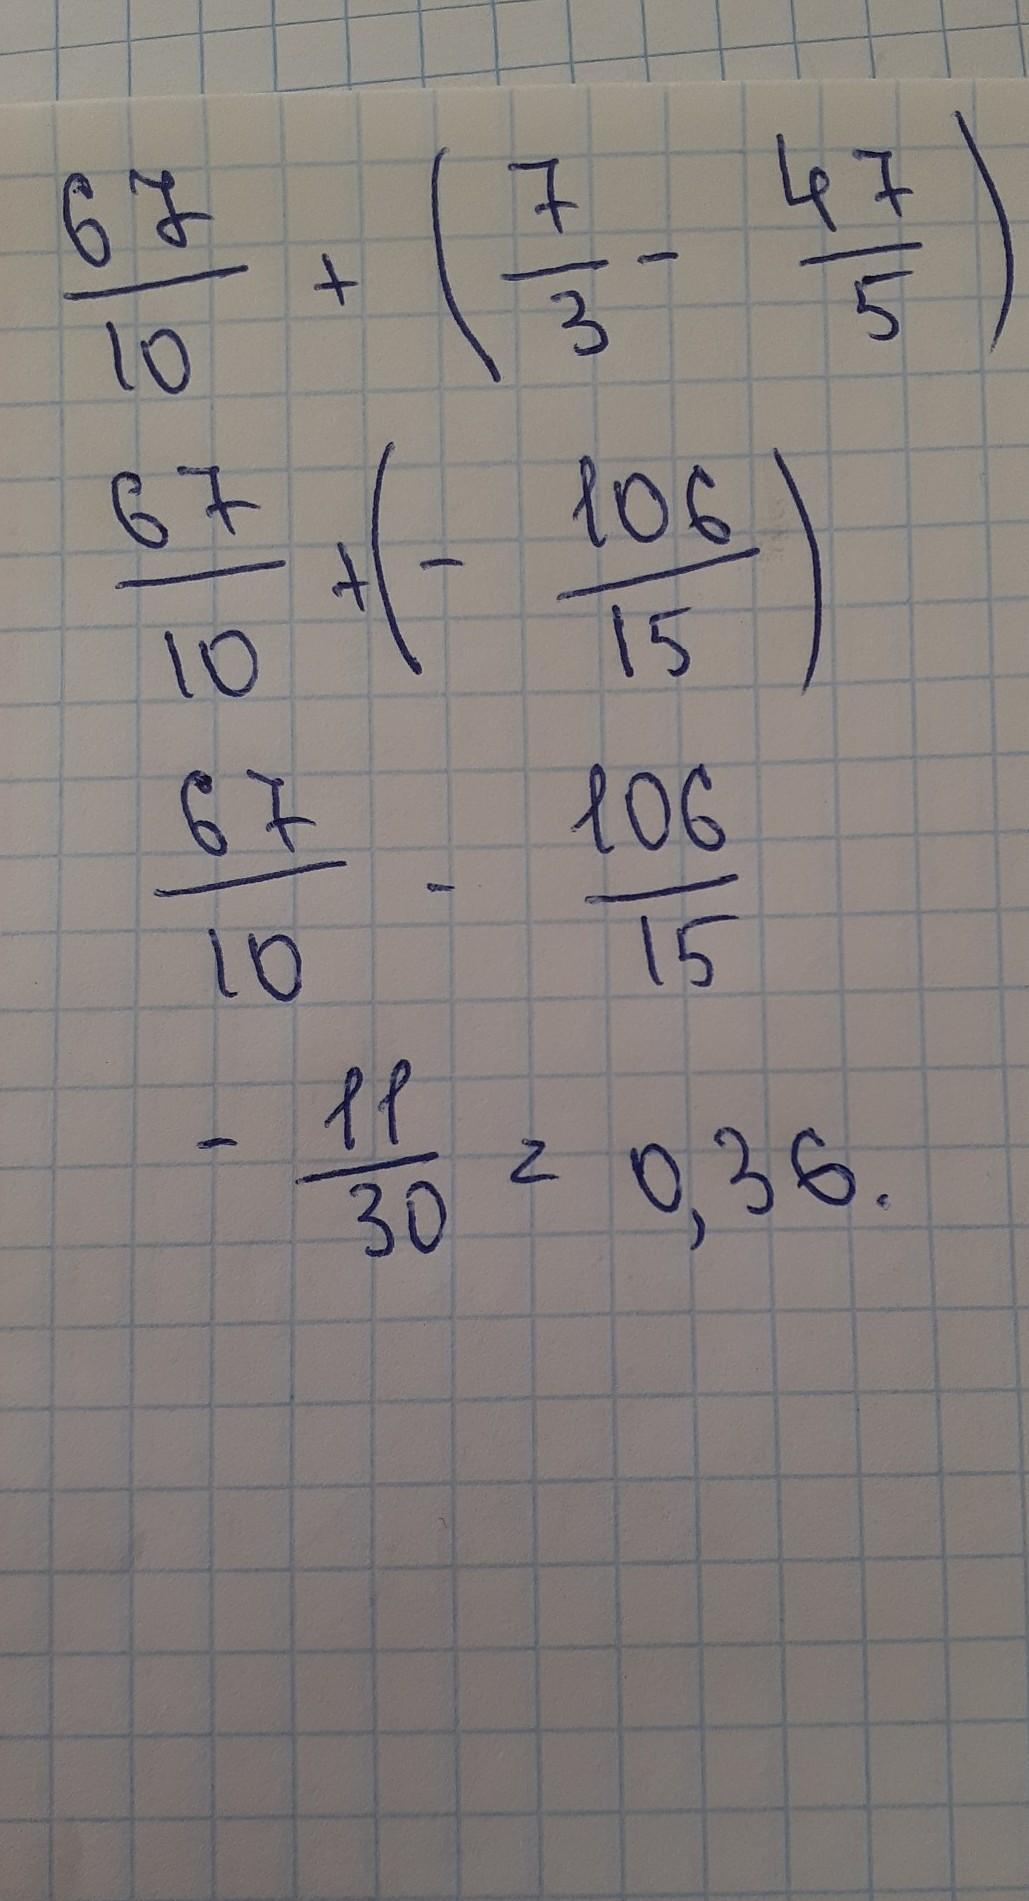 67/10 + (7/3 - 47/5)
67/10 + (- 106/15)
67/10 - 106/15
- 11/30 = 0,36.